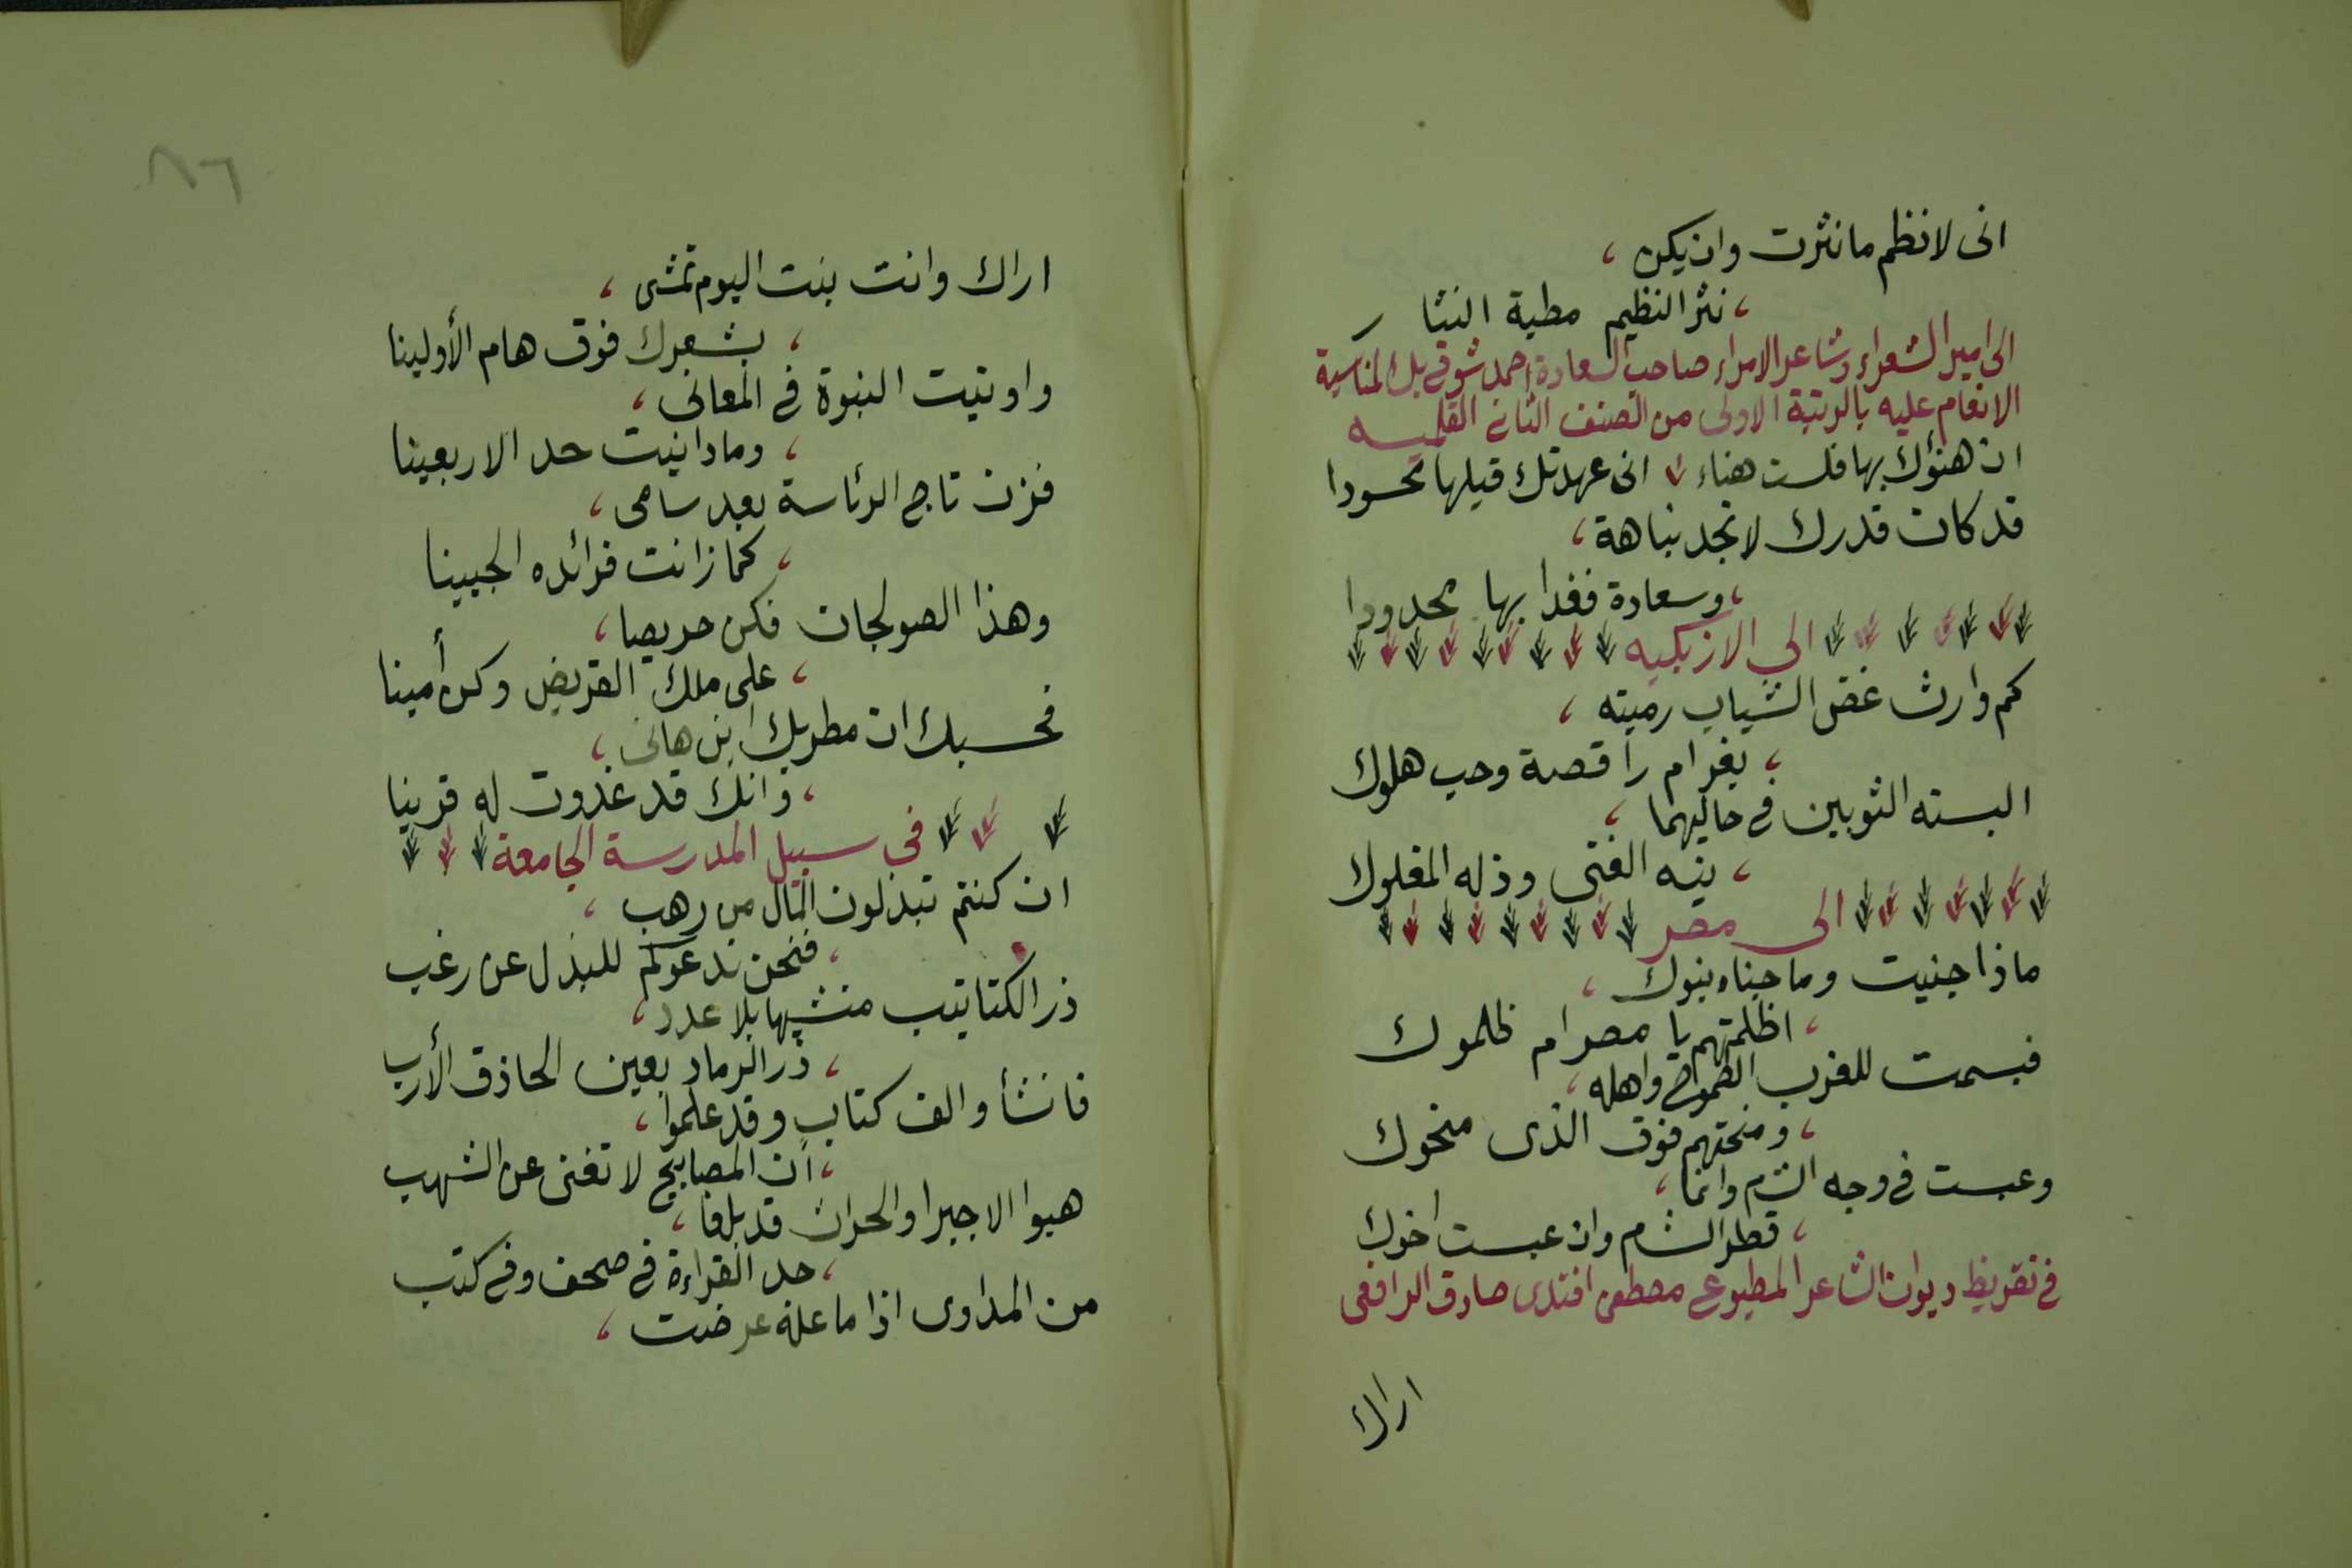 انى لانظم ما نثرت وان يكن ،
، نثر النظيم مطية النثا
الى امير الشعراء وشاعر الامراء صاحب السعادة احمد شوقى بك لمناسبة
الانعام عليه بالرتبة الاولى من الصنف الثانى القلميه
ان هنؤك بها فلست هناء ، انى عهدتك قبلها محسودا
قد كان قدرك لا تجد نباهة ،
، وسعادة فغدا بها محدودا
الى الازبكيه
كم وارث غض الشباب رميته ،
، بغرام راقصة وحب هلوك
البسته الثوبين فى حاليهما ،
، تيه الغنى وذله المفلوك
الى مصر
ماذا جنيت وما جناه بنوك ،
، اظلمتهم يا مصر ام ظلموك
فبسمت للغرب الطموح واهله ،
، ومنحتهم فوق الذى منحوك
وعبست فى وجه الشام وانما ،
، قطر الشام وان عبست اخوك
فى تقريظ ديوان الشاعر المطبوع مصطفى افندى صادق الرافعى
اراك
٨٦
اراك وانت بنت اليوم تمشى ،
، بشعرك فوق هام الأولينا
واوتيت النبوة فى المعانى ،
، وما دانيت حد الاربعينا
فزن تاج الرئاسة بعد سامى ،
، كما زانت فرائده الجبينا
وهذا الصولجان فكن حريصا ،
، على ملك القريض وكن أمينا
فحسبك ان مطريك ابن هانى ،
، وانك قد غدوت له قرينا
فى سبيل المدرسة الجامعة
ان كنتم تبذلون المال من رهب ،
، فنحن ندعوكم للبذل عن رغب
ذر الكتاتيب منشيها بلا عدد ،
، ذر الرماد بعين الحاذق الأرب
فانشأوا الف كتاب وقد علموا ،
، ان المصابيح لا تغنى عن الشهب
هبوا الاجير او الحراث قد بلغا ،
، حد القراءة فى صحف وفى كتب
من المداوى اذا ما علة عرضت ،